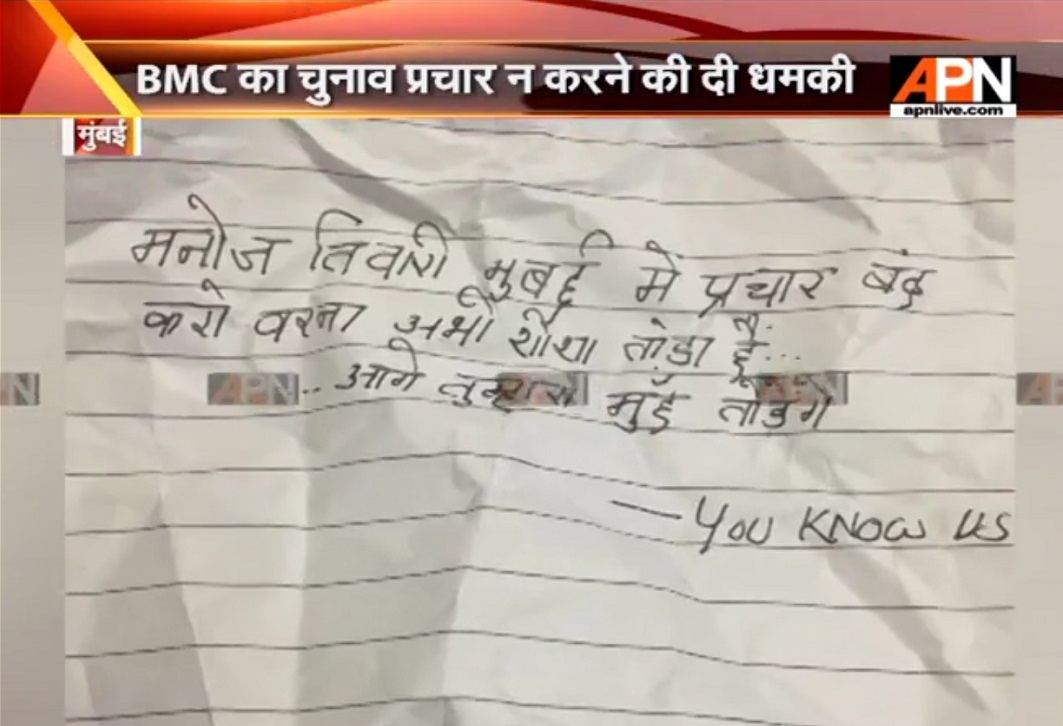 BMC का चुनाव प्रचार न करने की दी धमकी
APN
apnlive.com
मुंबई
मनोज तिवारी मुबई में प्रचार बंद
करो वरना अभी शीशा तोडा है...
.. आगे तुम्हारा मुहँ तोडेगे
— YOU KNOW US
APN APN APN APN APN